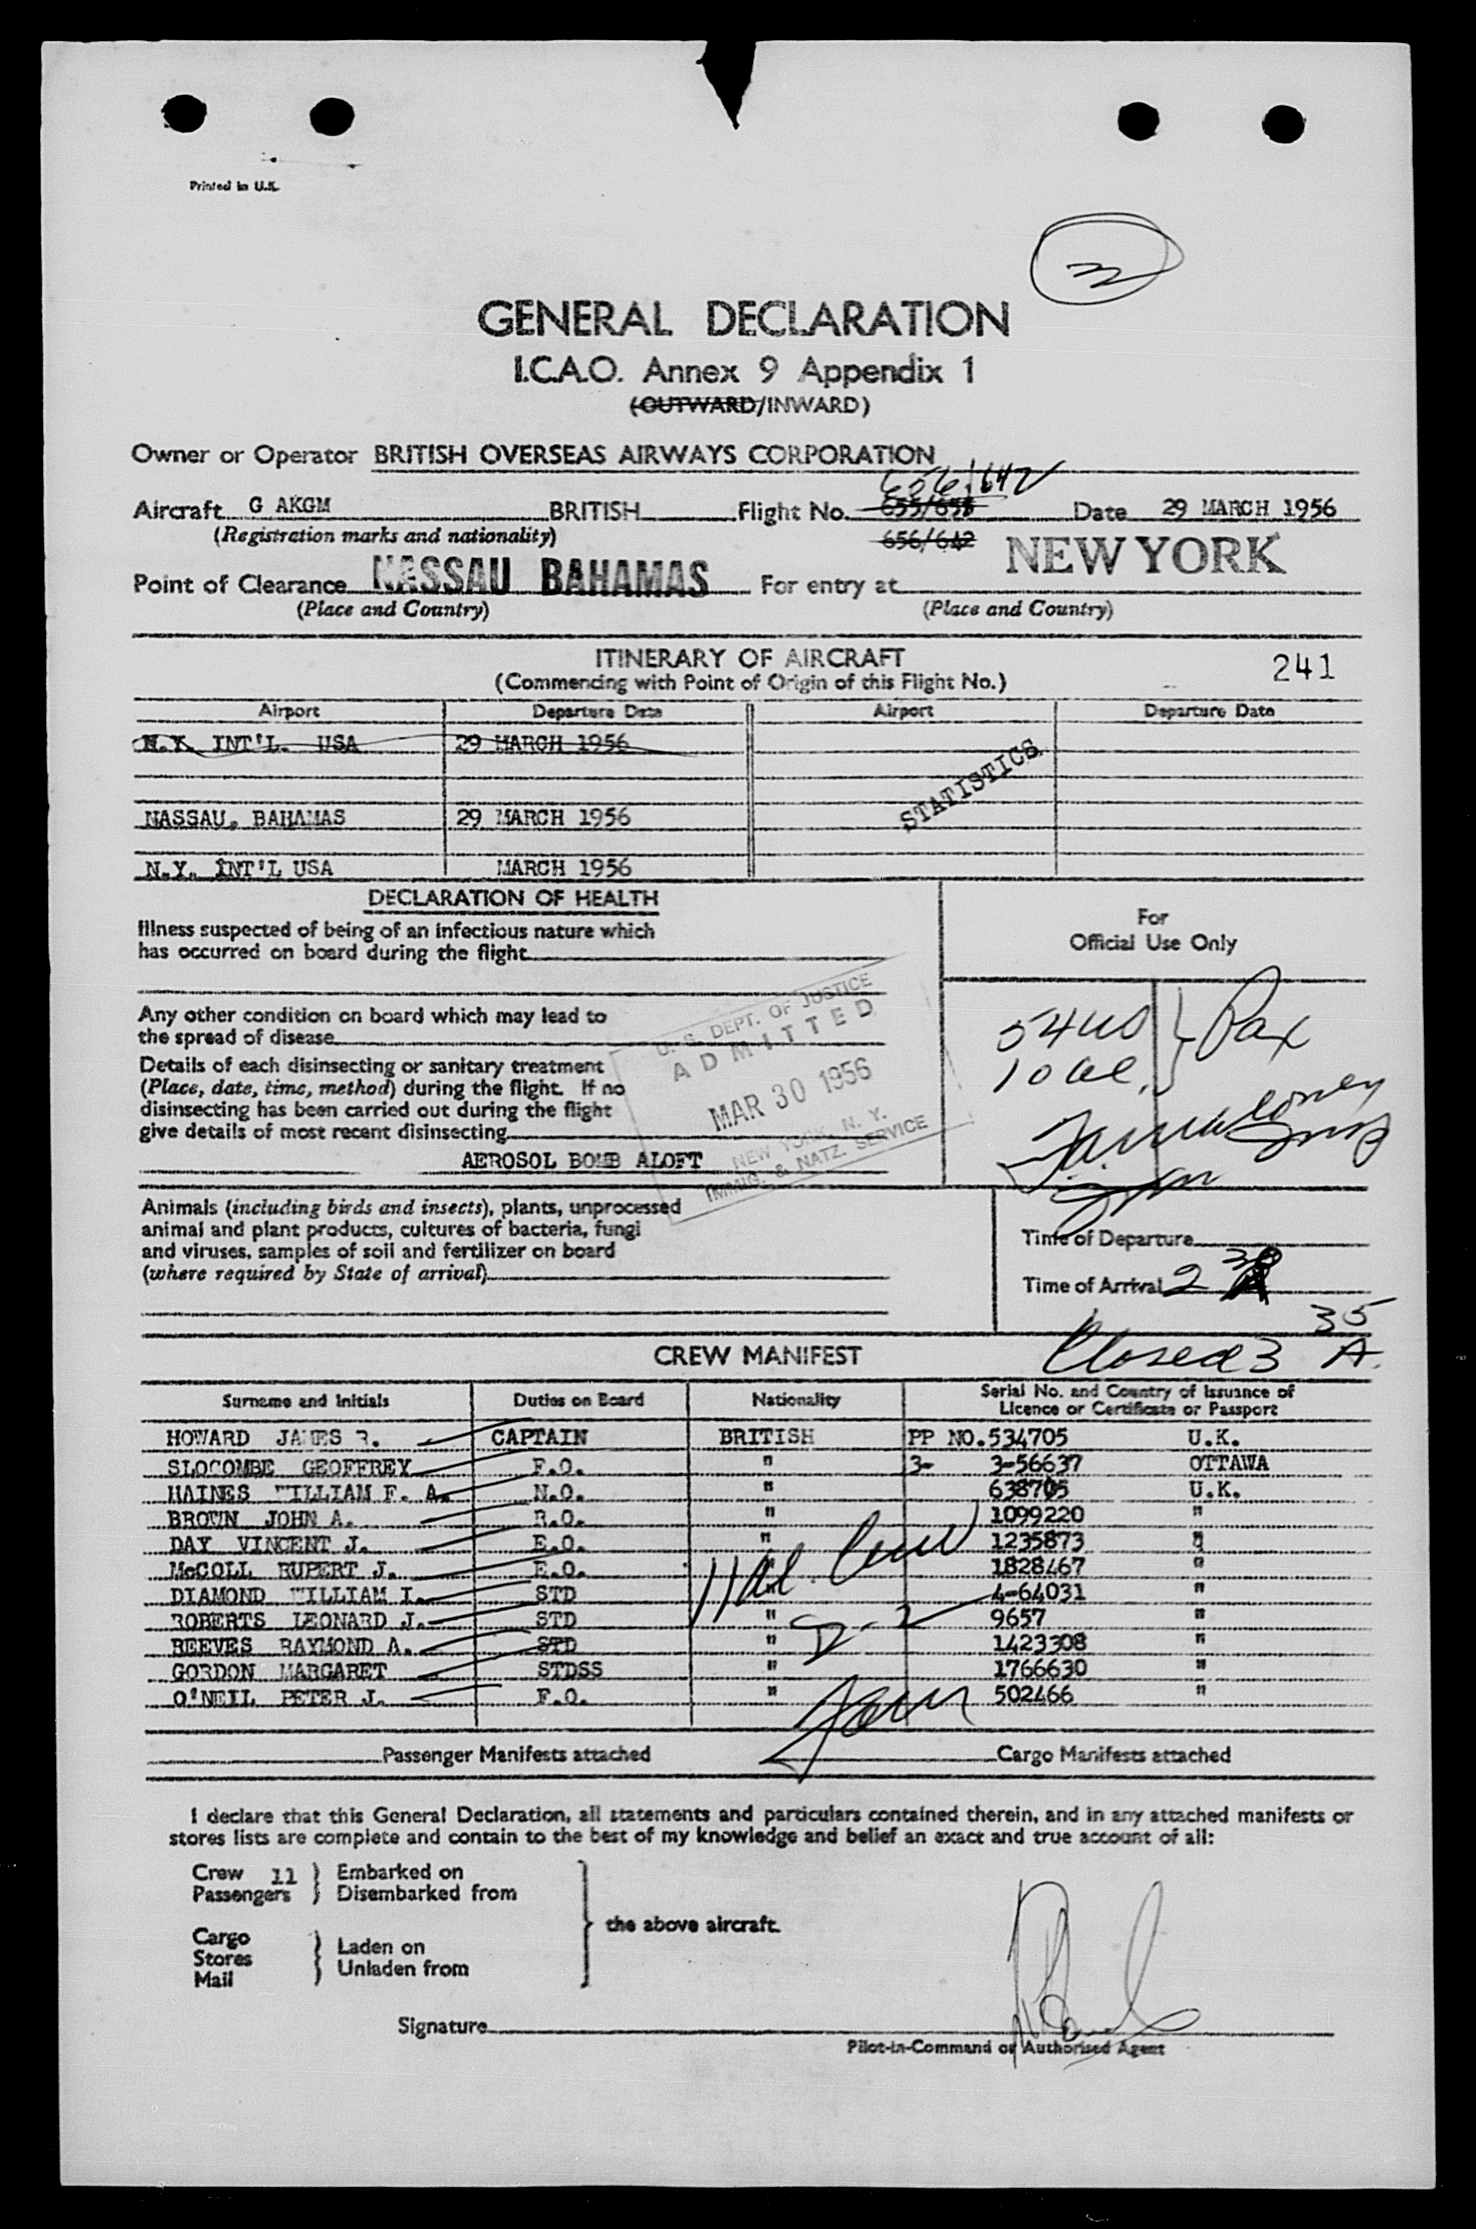 Printed in U.K.
2
GENERAL DECLARATION
I.C.A.O. Annex 9 Appendix 1
(OUTWARD/INWARD)
Owner or Operator BRITISH OVERSEAS AIRWAYS CORPORATION
656/642
Aircraft G AKGM BRITISH Flight No. 655/658 Date 29 MARCH 1956
(Registration marks and nationality) 656/642
Point of Clearance NASSAU BAHAMAS For entry at NEW YORK
(Place and Country) (Place and Country)
ITINERARY OF AIRCRAFT 241
(Commencing with Point of Origin of this Flight No.)
Airport Departure Date Airport Departure Date
N.Y. INT'L. USA 29 MARCH 1956
STATISTICS
NASSAU. BAHAMAS 29 MARCH 1956
N.Y. INT'L USA MARCH 1956
DECLARATION OF HEALTH
For
Official Use Only
Illness suspected of being of an infectious nature which
has occurred on board during the flight
Any other condition on board which may lead to
the spread of disease
54 US } Pax
10 al.
Details of each disinsecting or sanitary treatment
(Place, date, time, method) during the flight. If no
disinsecting has been carried out during the flight
give details of most recent disinsecting
AEROSOL BOMB ALOFT
U. S. DEPT. OF JUSTICE
ADMITTED
MAR 30 1956
NEW YORK, N. Y.
IMMIG. & NATZ. SERVICE
Animals (including birds and insects), plants, unprocessed
animal and plant products, cultures of bacteria, fungi
and viruses, samples of soil and fertilizer on board
(where required by State of arrival)
Time of Departure
Time of Arrival 2
Closed 3 35 A.
CREW MANIFEST
Surname and Initials Duties on Board Nationality Serial No. and Country of Issuance of
Licence or Certificate or Passport
HOWARD JAMES R. CAPTAIN BRITISH PP NO.534705 U.K.
SLOCOMBE GEOFFREY F.O. " 3- 3-56637 OTTAWA
HAINES WILLIAM F. A. N.O. " 638705 U.K.
BROWN JOHN A. R.O. " 1099220 "
DAY VINCENT J. E.O. " 1235873 "
McCOLL RUPERT J. E.O. " 1828467 "
DIAMOND WILLIAM I. STD " 4-64031 "
ROBERTS LEONARD J. STD " 9657 "
REEVES RAYMOND A. STD " 1423308 "
GORDON MARGARET STDSS " 1766630 "
O'NEIL PETER J. F.O. " 502466 "
11 al. Crew
D-2
Passenger Manifests attached Cargo Manifests attached
I declare that this General Declaration, all statements and particulars contained therein, and in any attached manifests or
stores lists are complete and contain to the best of my knowledge and belief an exact and true account of all:
Crew 11 } Embarked on
Passengers } Disembarked from
the above aircraft.
Cargo
Stores } Laden on
Mail } Unladen from
Signature
Pilot-in-Command or Authorised Agent